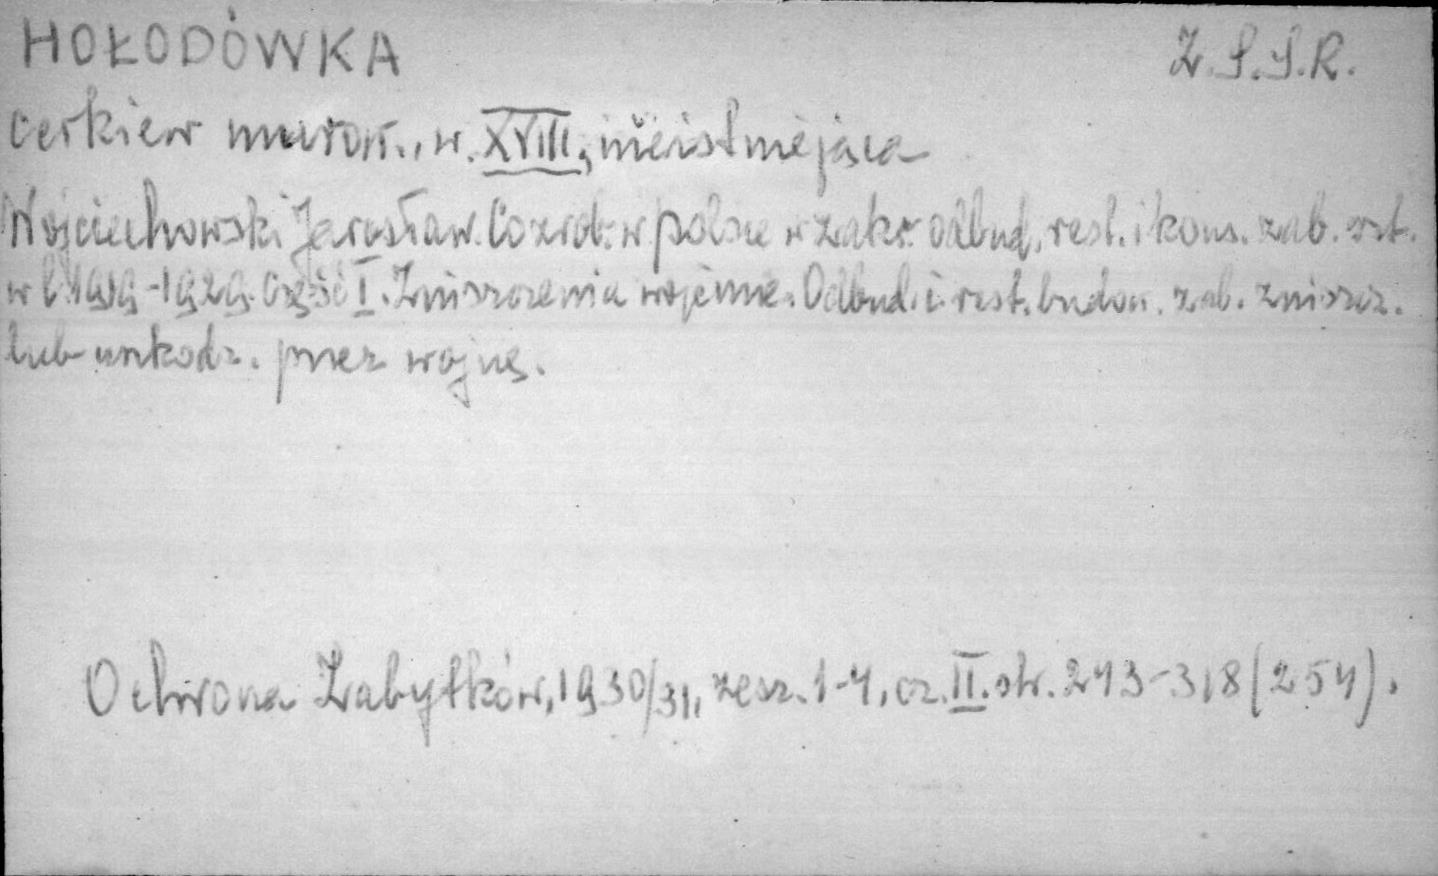 HOŁODÓWKA Z.S.S.R.
cerkiew murow., w. XVIII, nieistniejąca
Wojciechowski Jarosław. Co zrob. w Polsce w zakr. odbud. rest. i kons. zab. szt.
w l. 1919-1929. Część I. Zniszczenia wojenne. Odbud. i rest. budow. zab. zniszcz.
lub uszkodz. przez wojnę.
Ochrona Zabytków, 1930/31, zesz. 1-4, cz. II. str. 243-318 (254).